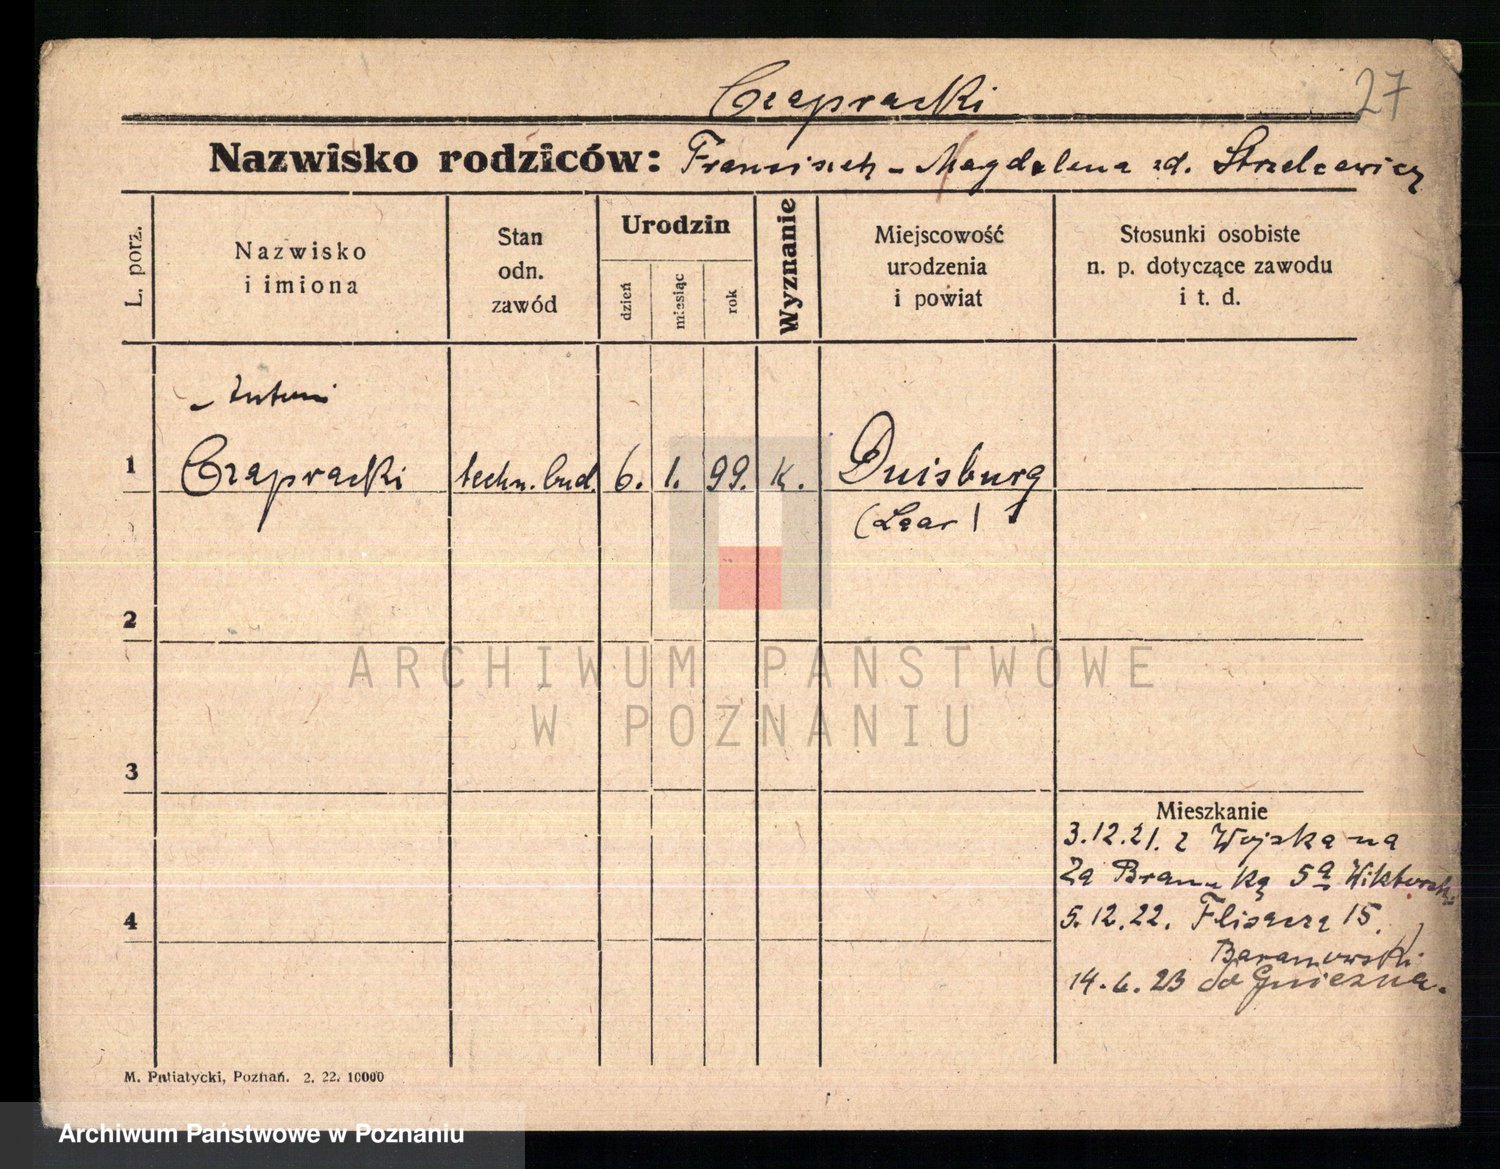 Czapracki 27
Nazwisko rodziców: Franciszek - Magdalena zd. Strzelcewicz
L. porz.
Nazwisko
i imiona
Stan
odn.
zawód
Urodzin
dzień
miesiąc
rok
Wyznanie
Miejscowość
urodzenia
i powiat
Stosunki osobiste
n. p. dotyczące zawodu
i t. d.
- Antoni
1 Czapracki techn. bud. 6. 1. 99. k. Duisburg
(Laar)
2
ARCHIWUM PAŃSTWOWE
W POZNANIU
3
Mieszkanie
3.12.21. z Wojska na
Za Bramką 5a
4 5.12.22. Flisacza 15.
Baranowski
14.6.23 do Gniezna.
M. Putiatycki, Poznań. 2. 22. 10000
Archiwum Państwowe w Poznaniu